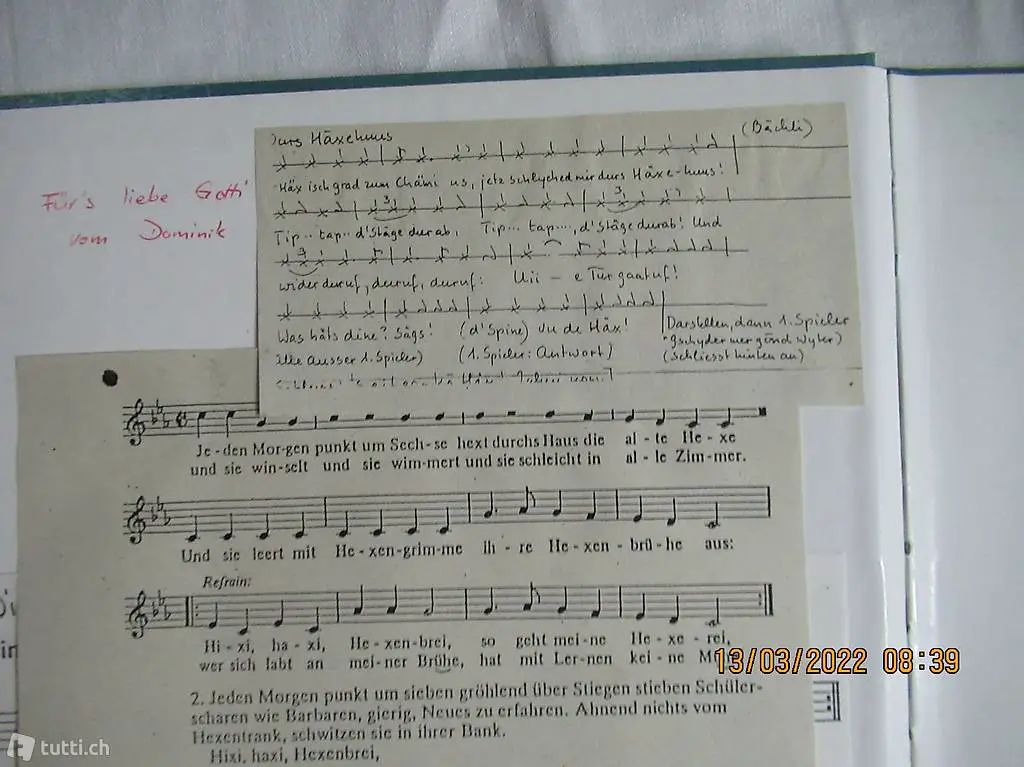 Für's liebe Gotti
vom Dominik
durs Häxehuus
(Bächli)
Häx isch grad zum Chämi us, jetz schlyched mir durs Häxe-huus!
3 3
Tip.. tap.. d'Stäge durab, Tip... tap...., d'Stäge durab! Und
3
wider duruf, duruf, duruf: Uii - e Tür gaat uf!
Was häts dine? Sägs! (d'Spine) vu de Häx!
Alle ausser 1. Spieler) (1. Spieler: Antwort)
Darstellen, dann 1. Spieler
"gschyder mer gönd wyter)
(schliesst hinten an)
Je-den Mor-gen punkt um Sech-se hext durchs Haus die al-te He-xe
und sie win-selt und sie wim-mert und sie schleicht in al-le Zim-mer.
Und sie leert mit He-xen-grim-me ih-re He-xen-brü-he aus:
Refrain:
Hi-xi, ha-xi, He-xen-brei, so geht mei-ne He-xe-rei,
wer sich labt an mei-ner Brühe, hat mit Ler-nen kei-ne
2. Jeden Morgen punkt um sieben gröhlend über Stiegen stieben Schüler-
scharen wie Barbaren, gierig, Neues zu erfahren. Ahnend nichts vom
Hexentrank, schwitzen sie in ihrer Bank.
Hixi, haxi, Hexenbrei,
13/03/2022 08:39
tutti.ch